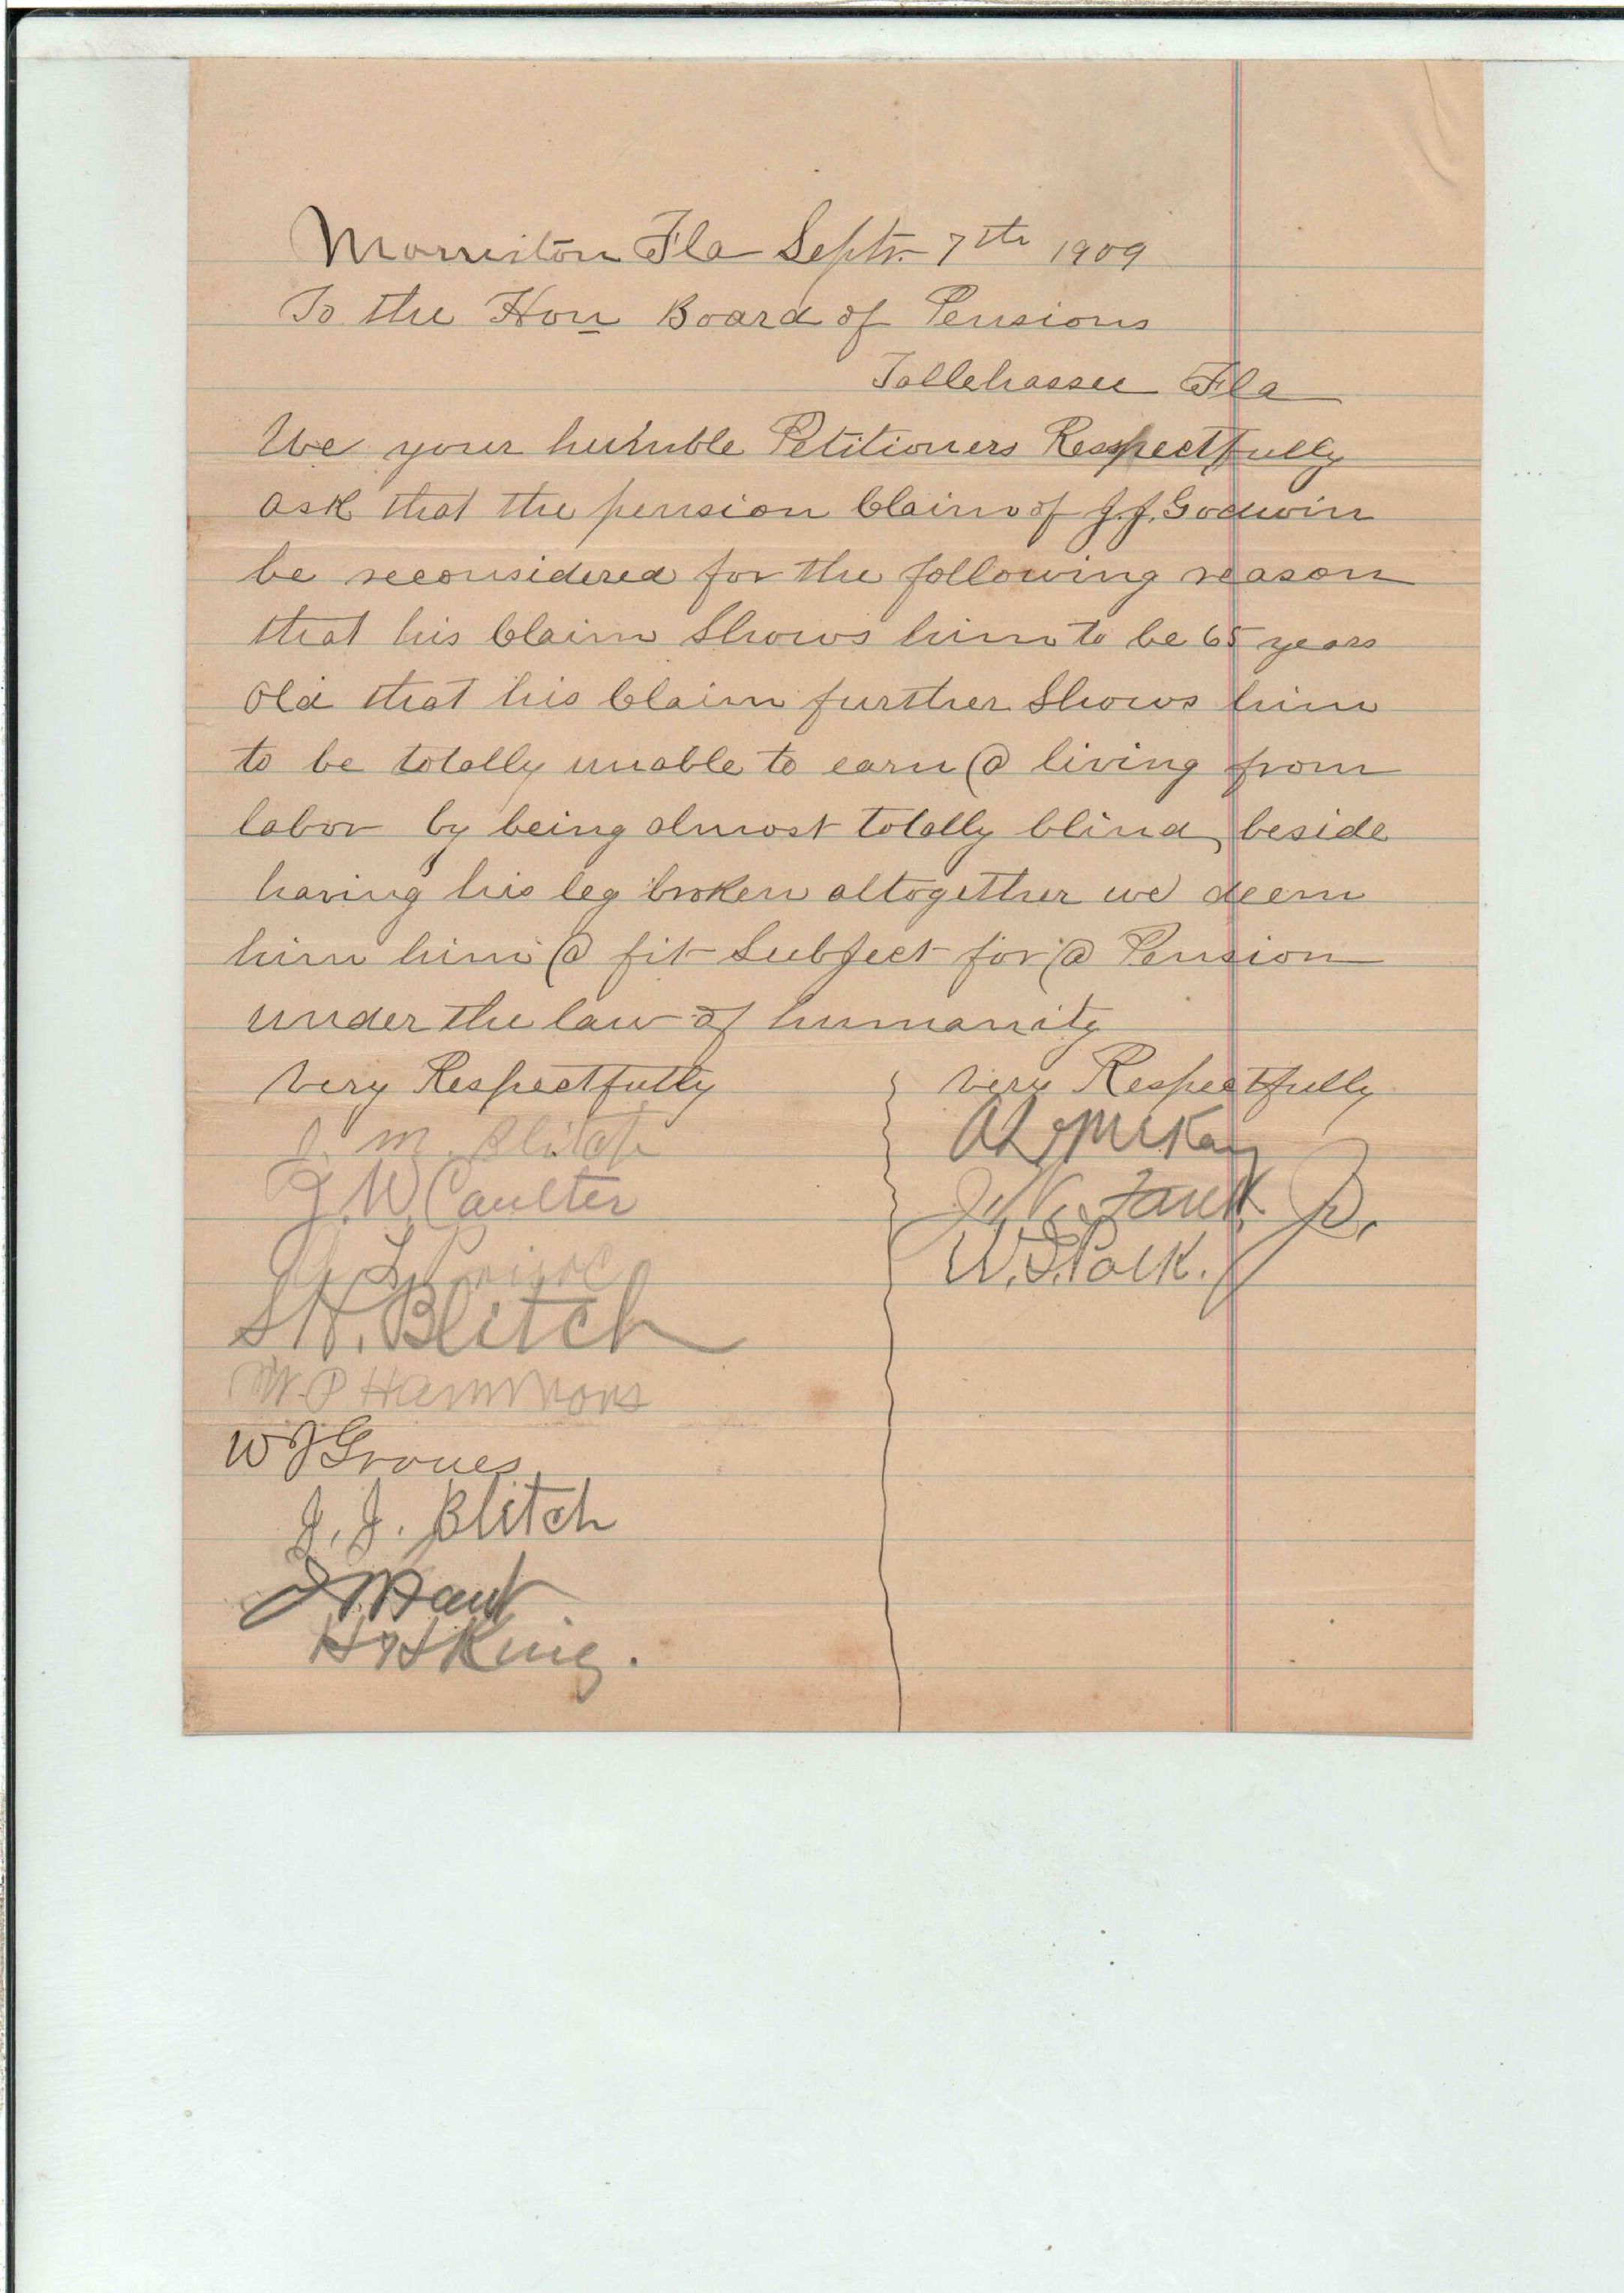 Morriston Fla Sept. 7th 1909
To the Hon Board of Pensions
Tallehassee Fla
We your humble Petitioners Respectfully
ask that the pension Claim of J.J. Godwin
be reconsidered for the following reason
that his Claim Shows him to be 65 years
Old that his Claim further Shows him
to be totally unable to earn @ living from
labor by being almost totally blind, beside
having his leg broken altogether we deem
him him @ fit Subject for @ Pension
under the law of humanity
Very Respectfully
J. M. Blitch
J. W. Caulter
S H. Blitch
W. P Hammons
W J Groves
J. J. Blitch
King.
Very Respectfully
McKay
Faulk Jr.
W. S. Polk.